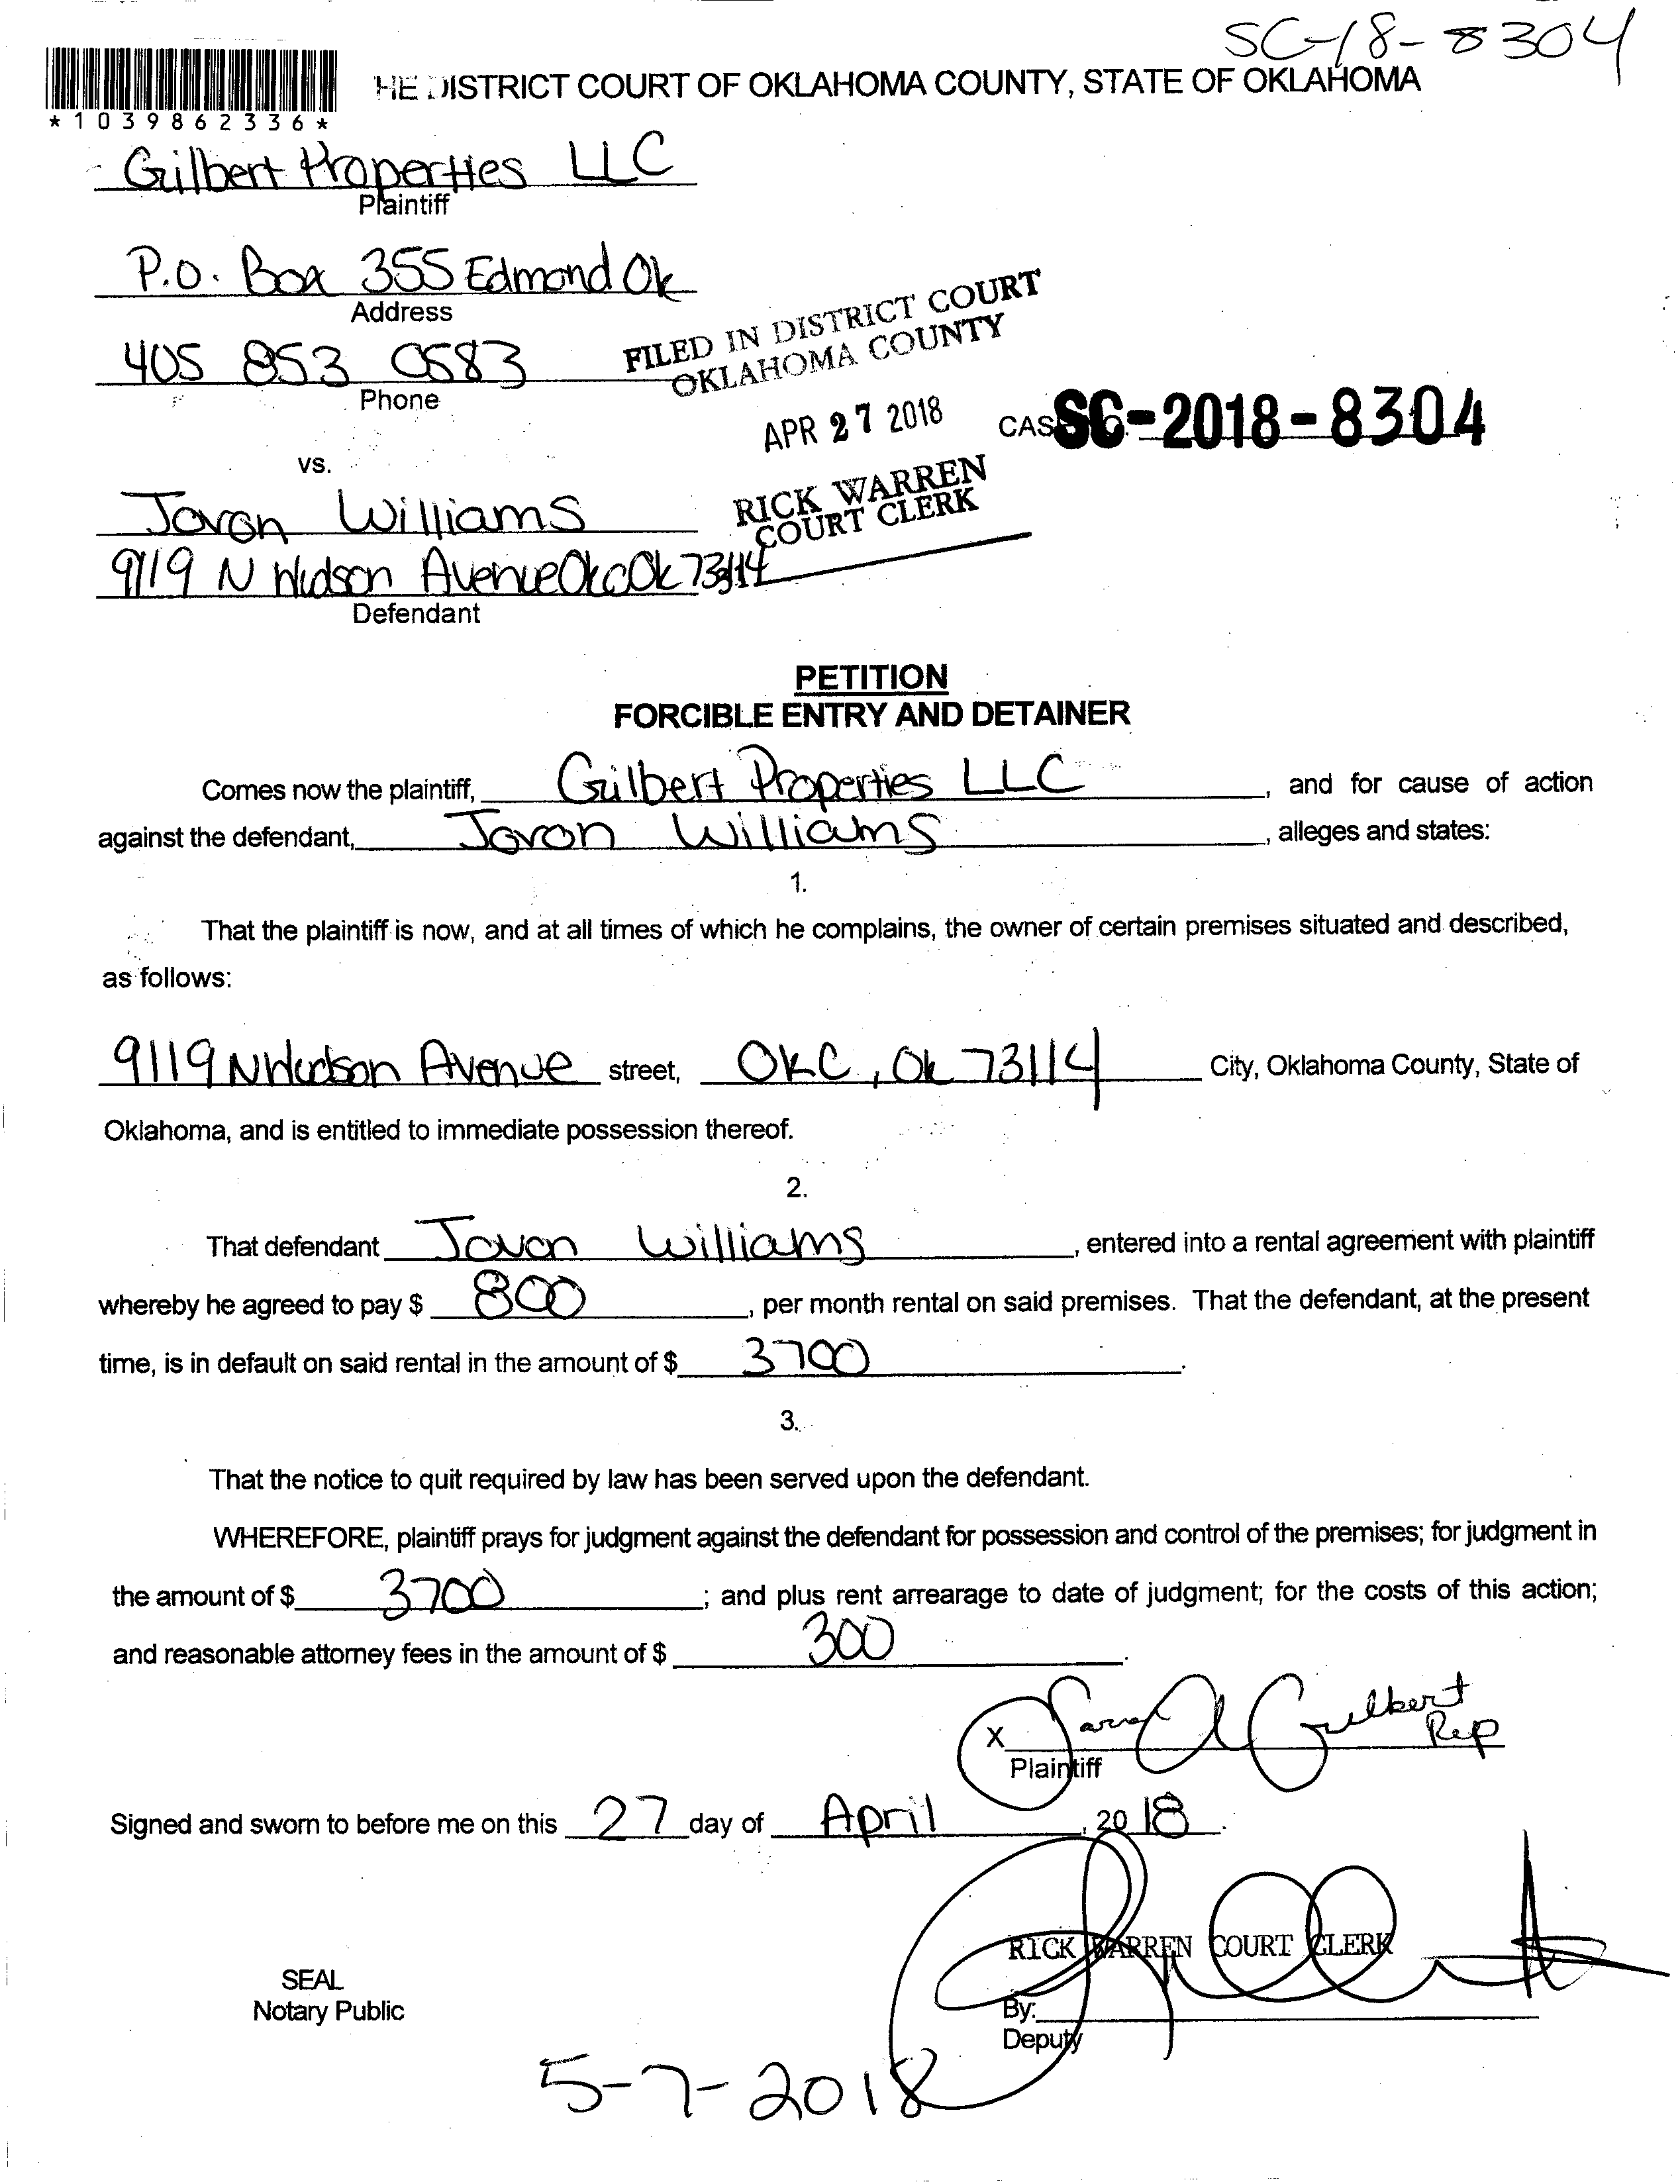 SC-18-8304
HE DISTRICT COURT OF OKLAHOMA COUNTY, STATE OF OKLAHOMA
*1039862336*
Gilbert Properties LLC
Plaintiff
P.O. Box 355 Edmond Ok
Address
405 853 0583
Phone
FILED IN DISTRICT COURT
OKLAHOMA COUNTY
APR 27 2018
CAS SC-2018-8304
vs.
RICK WARREN
COURT CLERK
Javon Williams
9119 N Hudson Avenue Okc Ok 73114
Defendant
PETITION
FORCIBLE ENTRY AND DETAINER
Comes now the plaintiff, Gilbert Properties LLC, and for cause of action
against the defendant, Javon Williams, alleges and states:
1.
That the plaintiff is now, and at all times of which he complains, the owner of certain premises situated and described,
as follows:
9119 N Hudson Avenue street, OKC, Ok 73114 City, Oklahoma County, State of
Oklahoma, and is entitled to immediate possession thereof.
2.
That defendant Javon Williams, entered into a rental agreement with plaintiff
whereby he agreed to pay $ 800, per month rental on said premises. That the defendant, at the present
time, is in default on said rental in the amount of $ 3700.
3.
That the notice to quit required by law has been served upon the defendant.
WHEREFORE, plaintiff prays for judgment against the defendant for possession and control of the premises; for judgment in
the amount of $ 3700; and plus rent arrearage to date of judgment; for the costs of this action;
and reasonable attorney fees in the amount of $ 300.
X Sara A Gilbert
Rep
Plaintiff
Signed and sworn to before me on this 27 day of April, 2018.
RICK WARREN COURT CLERK
SEAL
Notary Public
By:
Deputy
5-7-2018